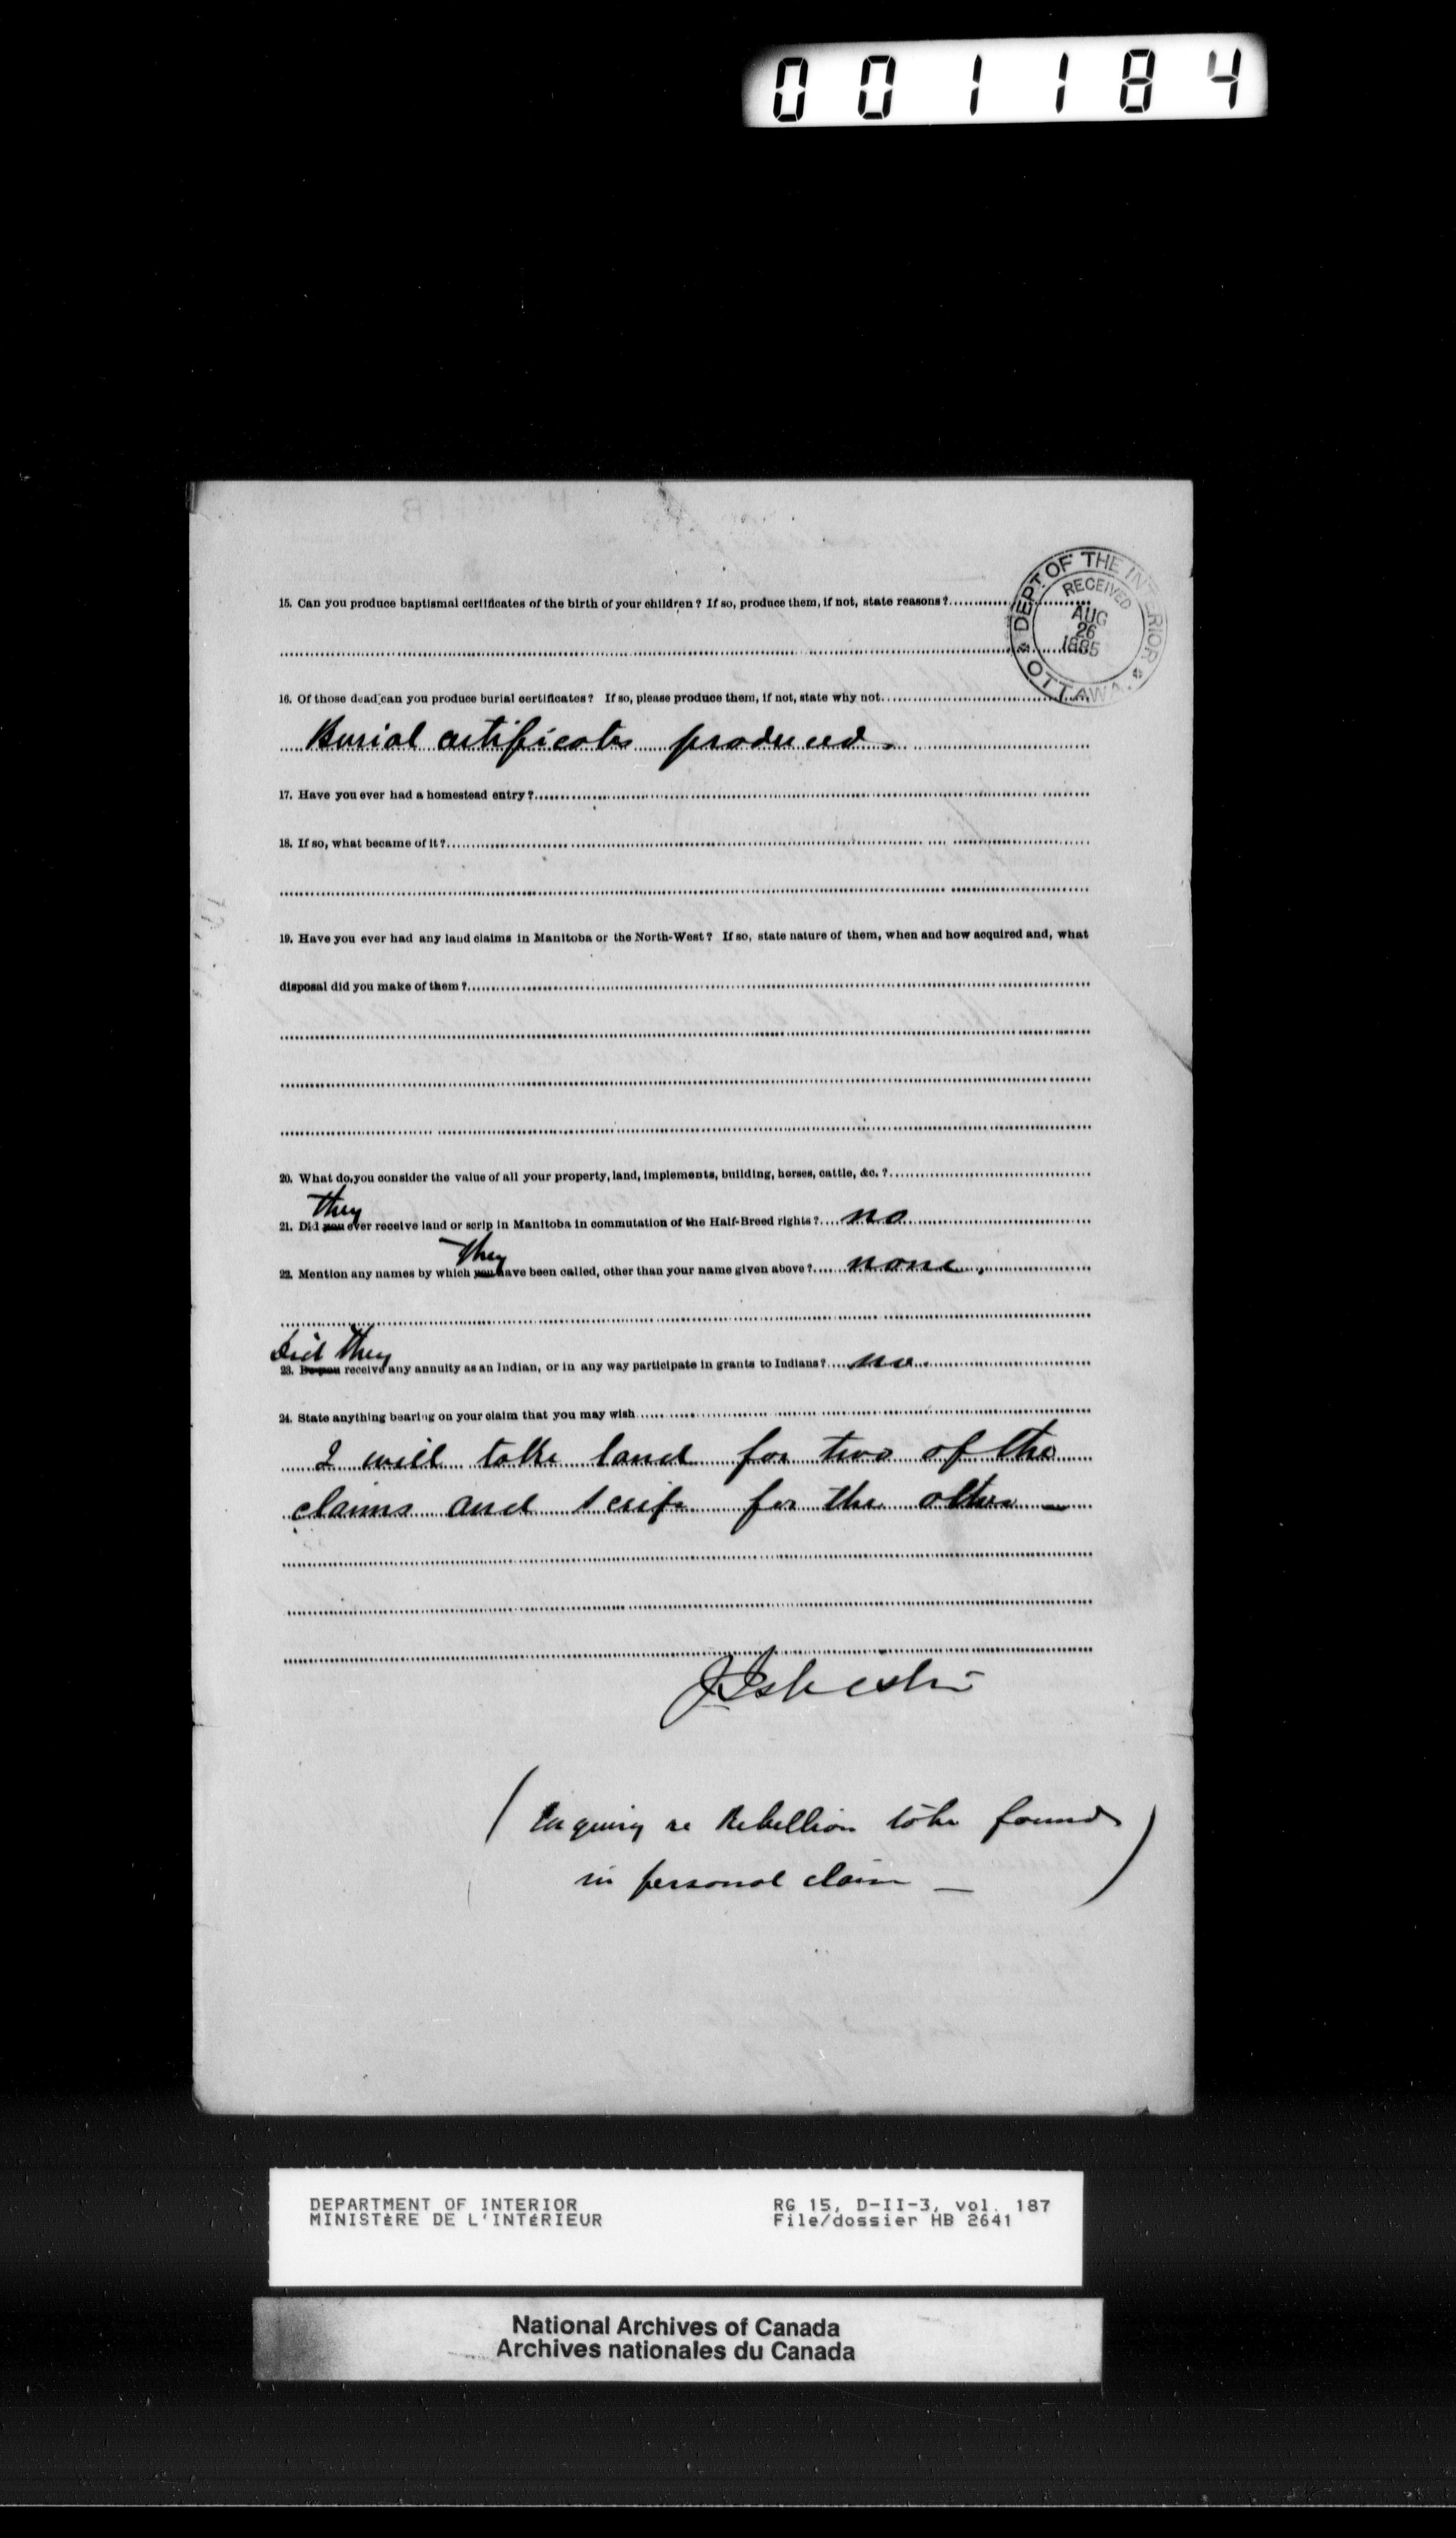 001184
DEPT. OF THE INTERIOR
RECEIVED
AUG
26
1885
OTTAWA.
15. Can you produce baptismal certificates of the birth of your children? If so, produce them, if not, state reasons?
16. Of those dead can you produce burial certificates? If so, please produce them, if not, state why not
Burial certificates produced.
17. Have you ever had a homestead entry?
18. If so, what became of it?
19. Have you ever had any land claims in Manitoba or the North-West? If so, state nature of them, when and how acquired and, what
disposal did you make of them?
20. What do you consider the value of all your property, land, implements, building, horses, cattle, &c.?
they
21. Did you ever receive land or scrip in Manitoba in commutation of the Half-Breed rights? no
they
22. Mention any names by which you have been called, other than your name given above? none.
Did they
23. Do you receive any annuity as an Indian, or in any way participate in grants to Indians? no.
24. State anything bearing on your claim that you may wish
I will take land for two of the
claims and scrip for the other —
(Enquiry re Rebellion to be found
in personal claim —)
DEPARTMENT OF INTERIOR
MINISTÈRE DE L'INTÉRIEUR
RG 15, D-II-3, vol. 187
File/dossier HB 2641
National Archives of Canada
Archives nationales du Canada